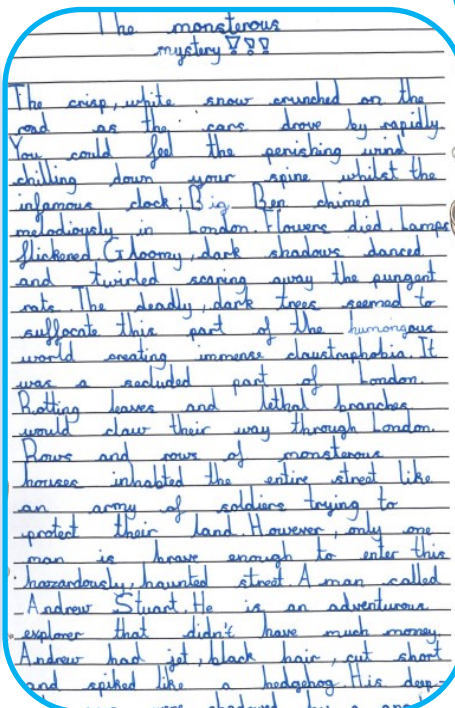 The monsterous
mystery!!!
The crisp, white snow crunched on the
road as the cars drove by rapidly.
You could feel the perishing wind
chilling down your spine whilst the
infamous clock; Big Ben chimed
melodiously in London. Flowers died. Lamps
flickered. Gloomy, dark shadows danced
and twirled scaring away the pungent
rats. The deadly, dark trees seemed to
suffocate this part of the humongous
world creating immense claustraphobia. It
was a secluded part of London.
Rotting leaves and lethal branches
would claw their way through London.
Rows and rows of monsterous
houses inhabted the entire street like
an army of soldiers trying to
protect their land. However, only one
man is brave enough to enter this
hazzardously, haunted street. A man called
Andrew Stuart. He is an adventurous
explorer that didn't have much money.
Andrew had jet, black hair, cut short
and spiked like a hedgehog. His deep-